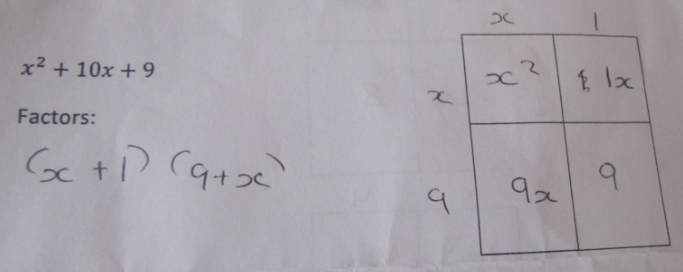 x² + 10x + 9
Factors:
(x + 1) (9+x)
x 1
x x² 1x
9 9x 9